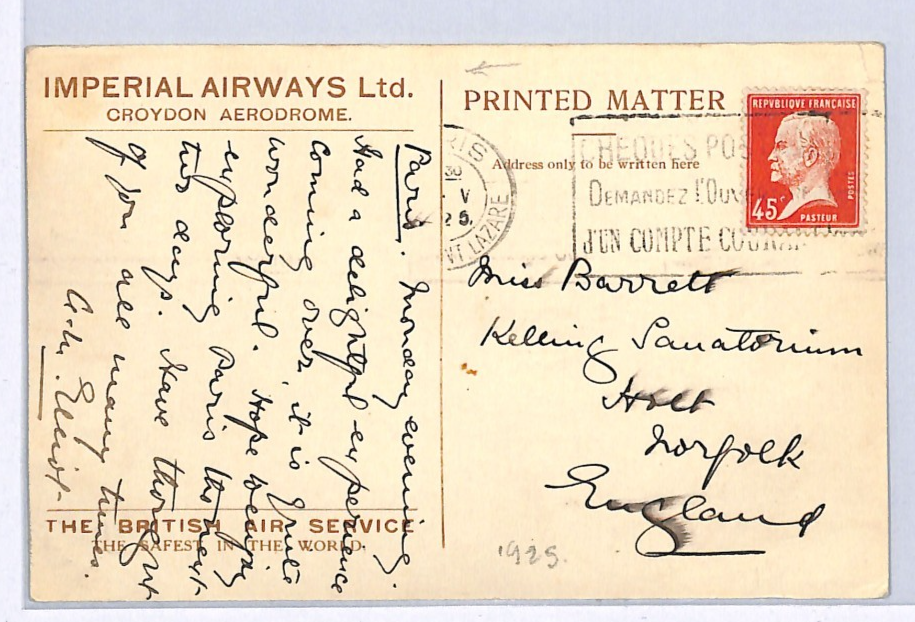 IMPERIAL AIRWAYS Ltd.
CROYDON AERODROME.
Paris. Monday evening.
Had a delightful experience
coming over, it is quite
wonderful. Hope being
exploring Paris the next
two days. Have thought
of you all many times.
Elliot
THE BRITISH AIR SERVICE
THE SAFEST IN THE WORLD.
PRINTED MATTER
Address only to be written here
REPVBLIQVE FRANÇAISE
POSTES
45c
PASTEUR
CHEQUES POS
DEMANDEZ L'OUV
D'UN COMPTE COURAN
RIS
30
V
25
NT LAZARE
Miss Barrett
Kelling Sanatorium
Holt
Norfolk
England
1925.